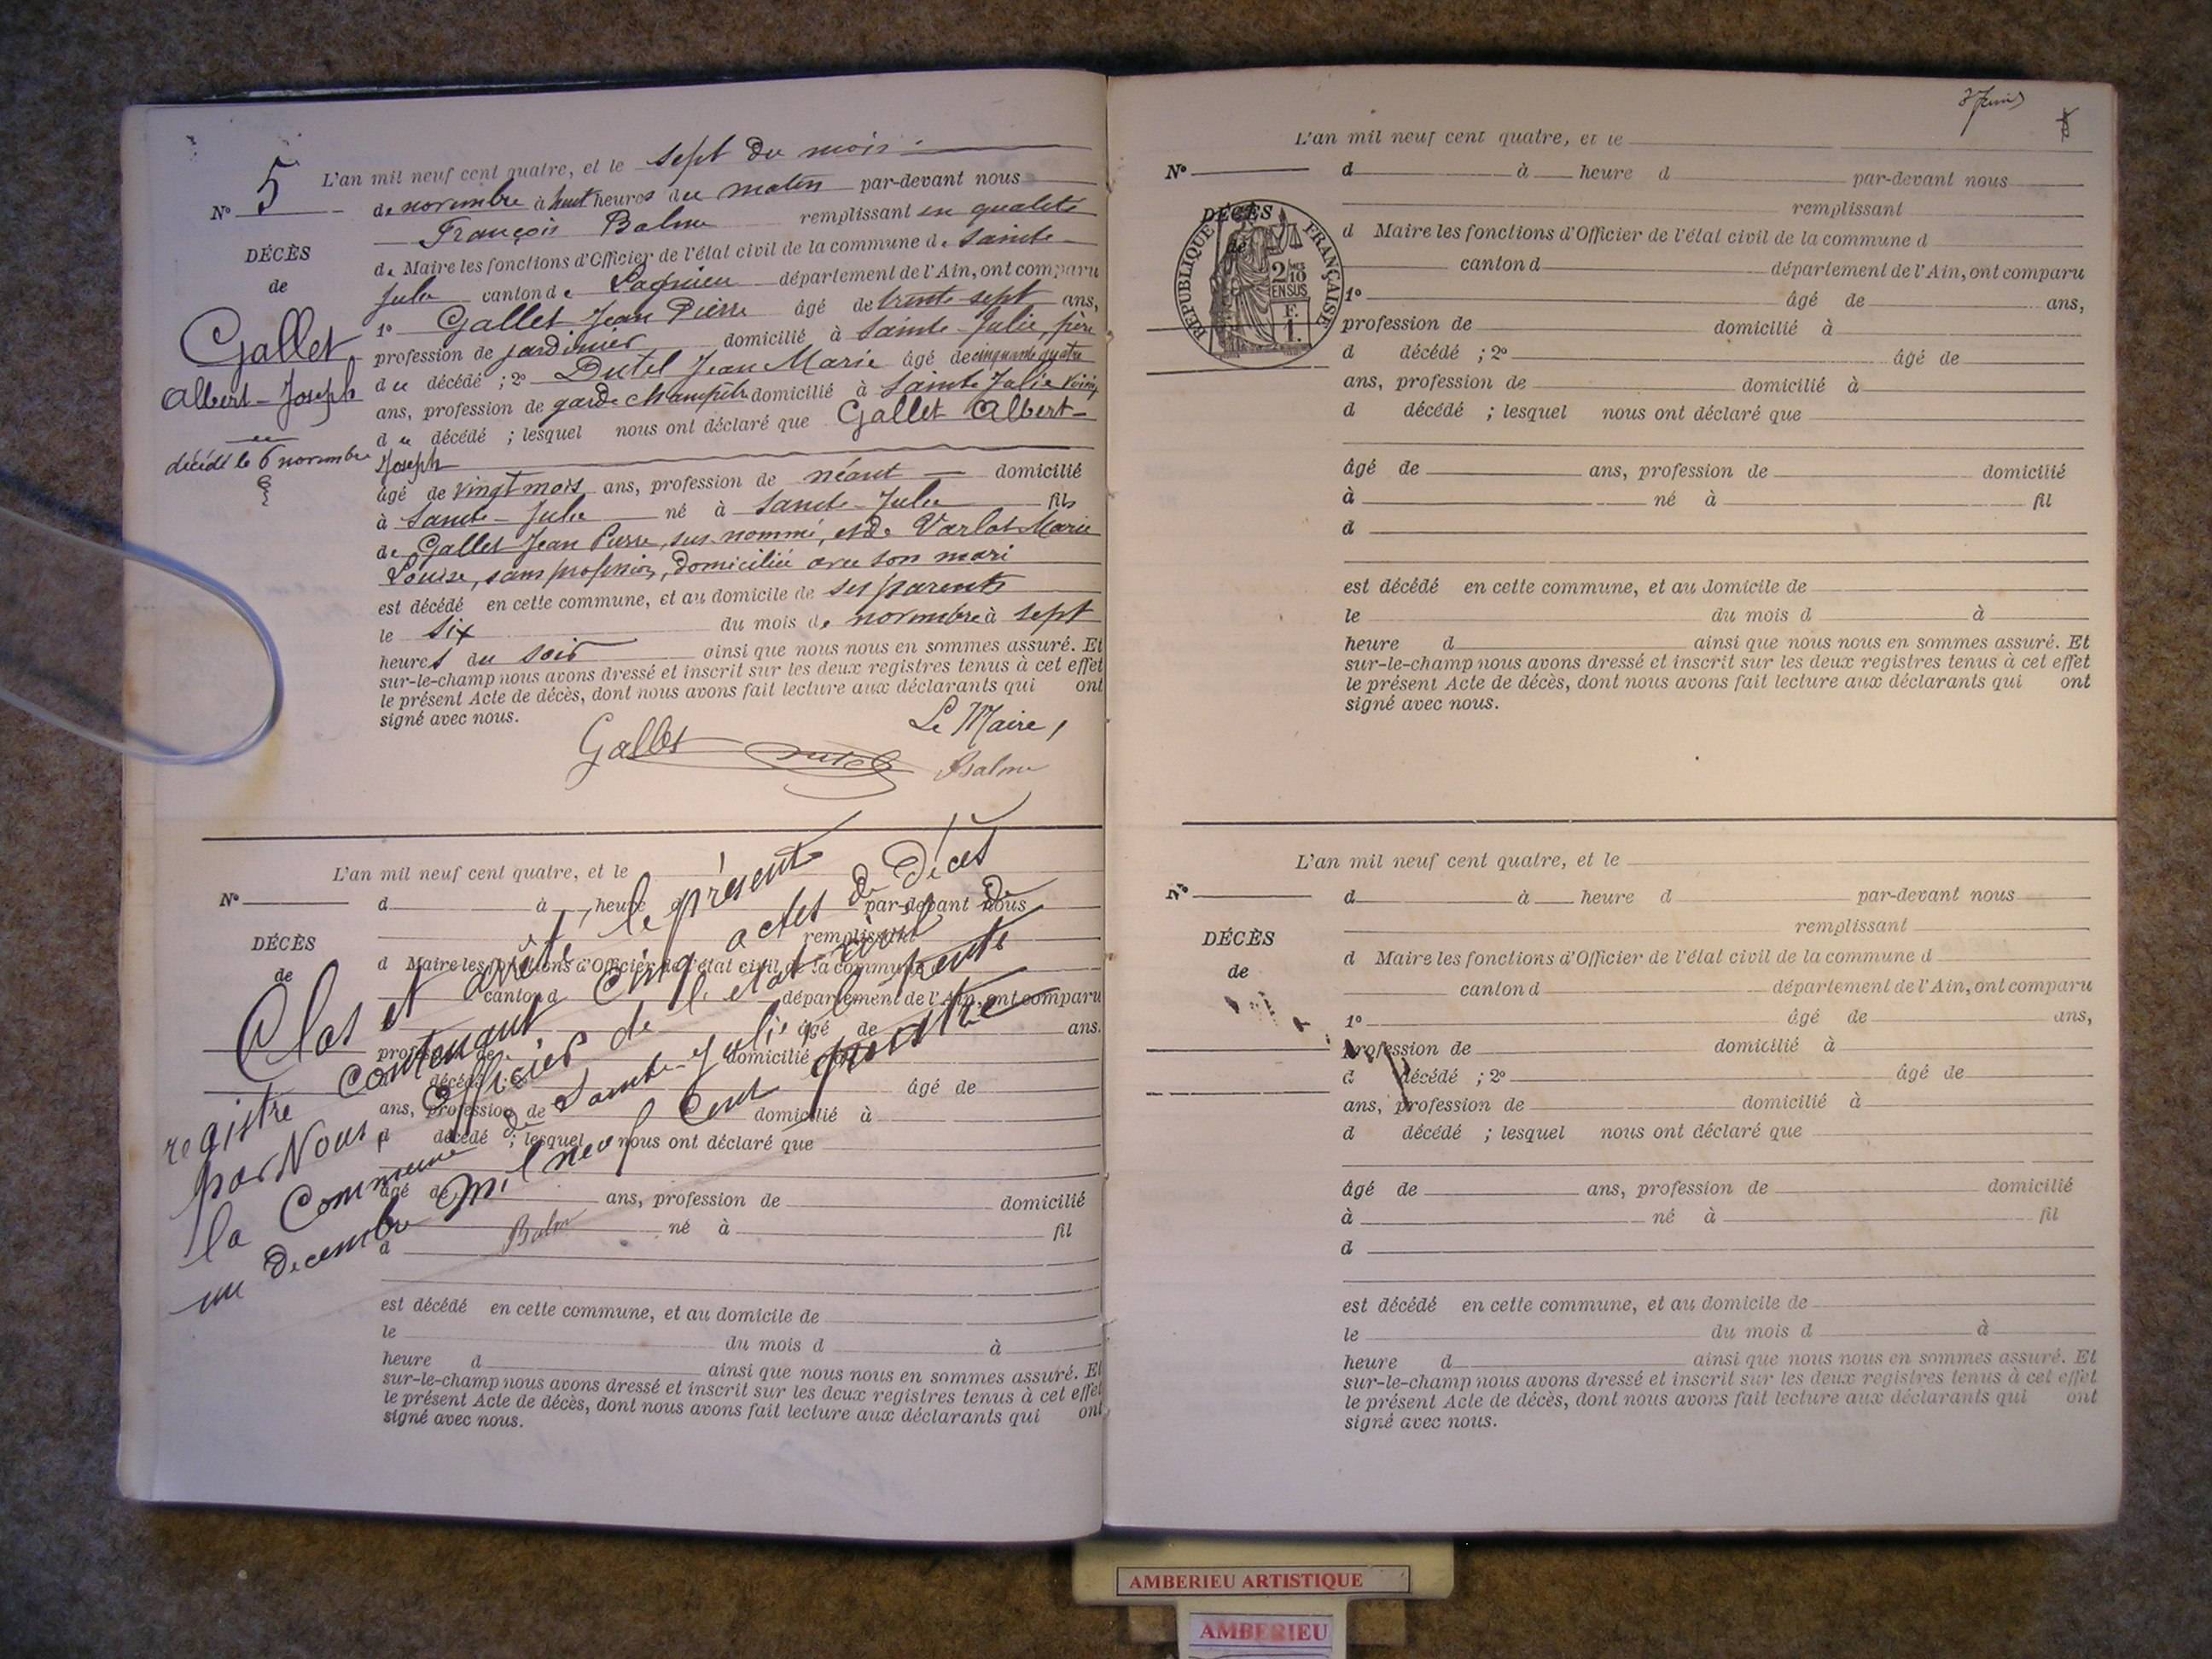 N° 5
DÉCÈS
de
Gallet
Albert-Joseph
décédé le 6 novembre
L'an mil neuf cent quatre, et le sept du mois
de novembre à huit heures du matin par-devant nous
François Balme remplissant en qualité
de Maire les fonctions d'Officier de l'état civil de la commune de Sainte-
Julie canton de Lagnieu département de l'Ain, ont comparu
1° Gallet Jean Pierre âgé de trente-sept ans,
profession de jardinier domicilié à Sainte-Julie, père
du décédé ; 2° Dutel Jean Marie âgé de cinquante quatre
ans, profession de garde champêtre domicilié à Sainte Julie voisin
du décédé ; lesquel nous ont déclaré que Gallet Albert-
Joseph
âgé de vingt mois ans, profession de néant domicilié
à Sainte-Julie né à Sainte-Julie fils
de Gallet Jean Pierre, sus nommé, et de Varlot Marie
Louise, sans profession, domiciliée avec son mari
est décédé en cette commune, et au domicile de ses parents
le six du mois de novembre à sept
heures du soir ainsi que nous nous en sommes assuré. Et
sur-le-champ nous avons dressé et inscrit sur les deux registres tenus à cet effet
le présent Acte de décès, dont nous avons fait lecture aux déclarants qui ont
signé avec nous.
Le Maire,
Gallet Dutel Balme
L'an mil neuf cent quatre, et le
N° d à heure d par-devant nous
remplissant
DÉCÈS
de
d Maire les fonctions d'Officier de l'état civil de la commune d
canton d département de l'Ain, ont comparu
âgé de ans.
profession de domicilié à
d décédé ; 2° âgé de
ans, profession de domicilié à
d décédé ; lesquel nous ont déclaré que
âgé de ans, profession de domicilié
à né à fil
d
est décédé en cette commune, et au domicile de
le du mois d à
heure d ainsi que nous nous en sommes assuré. Et
sur-le-champ nous avons dressé et inscrit sur les deux registres tenus à cet effet
le présent Acte de décès, dont nous avons fait lecture aux déclarants qui ont
signé avec nous.
Clos et arrêté le présent
registre contenant cinq actes de Décès
par Nous, officier de l'état civil de
la Commune de Sainte-Julie le trente
un decembre mil neuf cent quatre
Balme
L'an mil neuf cent quatre, et le
N° d à heure d par-devant nous
remplissant
DÉCÈS
de
RÉPUBLIQUE FRANÇAISE
2/10
EN SUS
F.
1.
d Maire les fonctions d'Officier de l'état civil de la commune d
canton d département de l'Ain, ont comparu
1° âgé de ans,
profession de domicilié à
d décédé ; 2° âgé de
ans, profession de domicilié à
d décédé ; lesquel nous ont déclaré que
âgé de ans, profession de domicilié
à né à fil
d
est décédé en cette commune, et au domicile de
le du mois d à
heure d ainsi que nous nous en sommes assuré. Et
sur-le-champ nous avons dressé et inscrit sur les deux registres tenus à cet effet
le présent Acte de décès, dont nous avons fait lecture aux déclarants qui ont
signé avec nous.
L'an mil neuf cent quatre, et le
N° d à heure d par-devant nous
remplissant
DÉCÈS
de
d Maire les fonctions d'Officier de l'état civil de la commune d
canton d département de l'Ain, ont comparu
1° âgé de ans,
profession de domicilié à
d décédé ; 2° âgé de
ans, profession de domicilié à
d décédé ; lesquel nous ont déclaré que
âgé de ans, profession de domicilié
à né à fil
d
est décédé en cette commune, et au domicile de
le du mois d à
heure d ainsi que nous nous en sommes assuré. Et
sur-le-champ nous avons dressé et inscrit sur les deux registres tenus à cet effet
le présent Acte de décès, dont nous avons fait lecture aux déclarants qui ont
signé avec nous.
AMBERIEU ARTISTIQUE
AMBERIEU